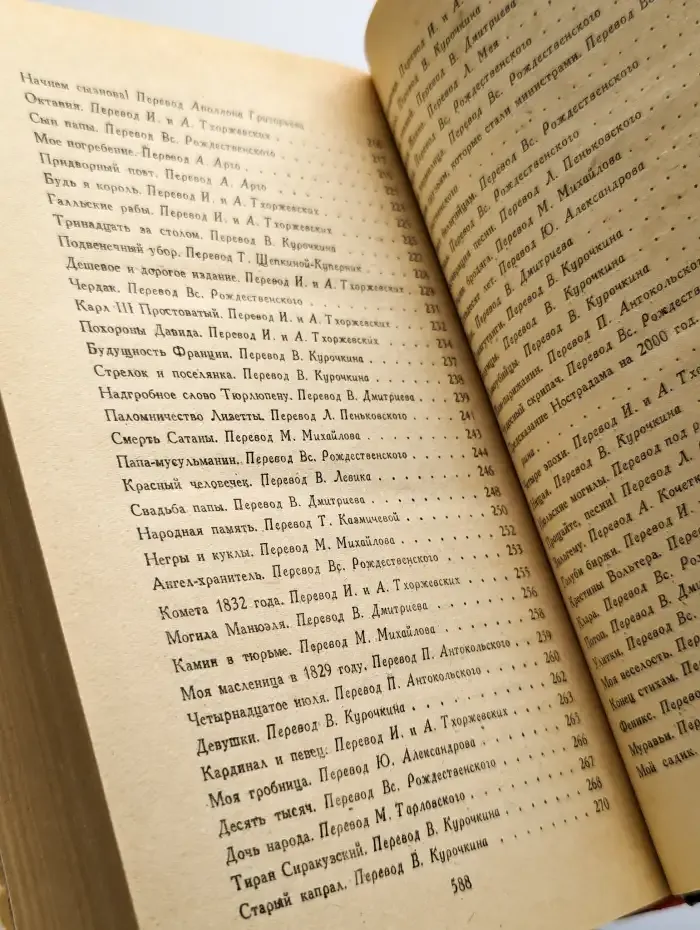 Начнем сызнова! Перевод Аполлона Григорьева
Октавия. Перевод И. и А. Тхоржевских . 216
Сын папы. Перевод Вс. Рождественского .
Мое погребение. Перевод А. Арго .
Придворный поэт. Перевод А. Арго .
Будь я король. Перевод И. и А. Тхоржевских .
Галльские рабы. Перевод И. и А. Тхоржевских .
Тринадцать за столом. Перевод В. Курочкина . 225
Подвенечный убор. Перевод Т. Щепкиной-Куперник . 227
Дешевое и дорогое издание. Перевод И. и А. Тхоржевских . 228
Чердак. Перевод Вс. Рождественского . 229
Карл III Простоватый. Перевод И. и А. Тхоржевских . 231
Похороны Давида. Перевод И. и А. Тхоржевских . 232
Будущность Франции. Перевод В. Курочкина . 234
Стрелок и поселянка. Перевод В. Курочкина . 237
Надгробное слово Тюрлюпену. Перевод В. Дмитриева . 238
Паломничество Лизетты. Перевод Л. Пеньковского . 239
Смерть Сатаны. Перевод М. Михайлова . 241
Папа-мусульманин. Перевод Вс. Рождественского . 243
Красный человечек. Перевод В. Левика . 244
Свадьба папы. Перевод В. Дмитриева . 246
Народная память. Перевод Т. Казмичевой . 248
Негры и куклы. Перевод М. Михайлова . 250
Ангел-хранитель. Перевод Вс. Рождественского . 252
Комета 1832 года. Перевод И. и А. Тхоржевских . 253
Могила Манюэля. Перевод В. Дмитриева . 255
Камин в тюрьме. Перевод М. Михайлова . 256
Моя масленица в 1829 году. Перевод П. Антокольского . 258
Четырнадцатое июля. Перевод П. Антокольского . 259
Девушки. Перевод В. Курочкина . 260
Кардинал и певец. Перевод И. и А. Тхоржевских . 262
Моя гробница. Перевод Ю. Александрова . 263
Десять тысяч. Перевод Вс. Рождественского . 265
Дочь народа. Перевод М. Тарловского . 266
Тиран Сиракузский. Перевод В. Курочкина . 267
Старый капрал. Перевод В. Курочкина . 268
270
588
Перевод И. и А.
Перевод В. Курочкина
Перевод В. Дмитриева
Перевод Л. Мея
Перевод Вс. Рождественского
Перевод Вс. Рождественского
которые стали министрами. Перевод Вс.
Перевод Вс. Рождественского
Перевод Вс. Рождественского
песни. Перевод Л. Пеньковского
бродяга. Перевод М. Михайлова
лет. Перевод Ю. Александрова
Перевод В. Дмитриева
Перевод В. Курочкина
Перевод В. Курочкина
Перевод В. Курочкина
Перевод П. Антокольского
скрипач. Перевод Вс. Рождественского
Нострадама на 2000 год.
Четыре эпохи. Перевод И. и А. Тхоржевских
Перевод В. Курочкина
могилы. Перевод под р
Прощайте, песни! Перевод Л.
Перевод А. Кочетк
Голуби биржи. Перевод И.
Крестины Вольтера. Перевод
Клара. Перевод Вс.
Потоп. Перевод В. Дм
Улитки. Перевод Вс.
Моя веселость. Перевод
Конец стихам. Перево
Феникс. Перевод
Муравьи. Пер
Мой садик.